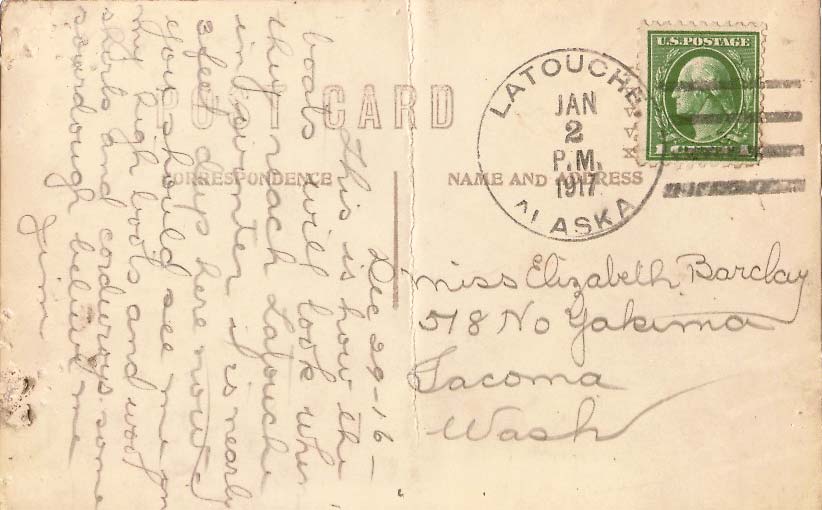 POST CARD
CORRESPONDENCE
NAME AND ADDRESS
U.S. POSTAGE
LATOUCHE.
JAN
2
P.M.
1917
ALASKA
Dec 29-16-
This is how the
boats will look when
they reach Latouche
in winter it is nearly
3 feet deep here now &
you should see me in
my high boots and wool
shirts and corduroys some
sourdough believe me
Jim
Miss Elizabeth Barclay
518 No Yakima
Tacoma
Wash